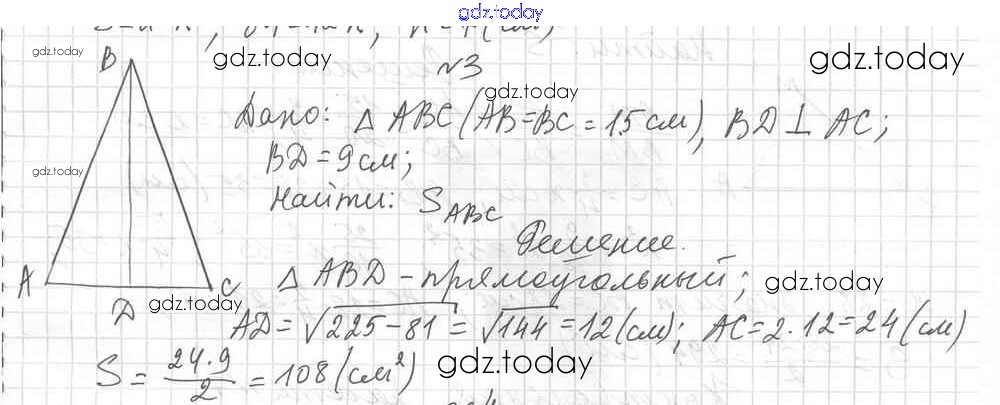 gdz.today
gdz.today
gdz.today
gdz.today
B
№3
gdz.today
Дано: △ ABC (AB=BC=15 см), BD ⊥ AC;
BD = 9 см;
gdz.today
Найти: S_ABC
Решение.
△ ABD – прямоугольный;
gdz.today
A
C
D
gdz.today
AD = √225-81 = √144 = 12 (см); AC = 2·12 = 24 (см)
S = 24·9/2 = 108 (см²)
gdz.today